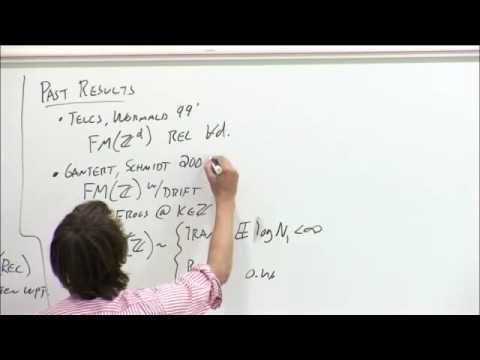 PAST RESULTS
• TELCS, WORMALD 99'
FM(ℤᵈ) REC ∀d.
• GANTERT, SCHMIDT 200
FM(ℤ) w/DRIFT
FROGS @ K∈ℤ
ℤ) ~ { TRAN 𝔼 log N₁ < ∞
O.W
REC)